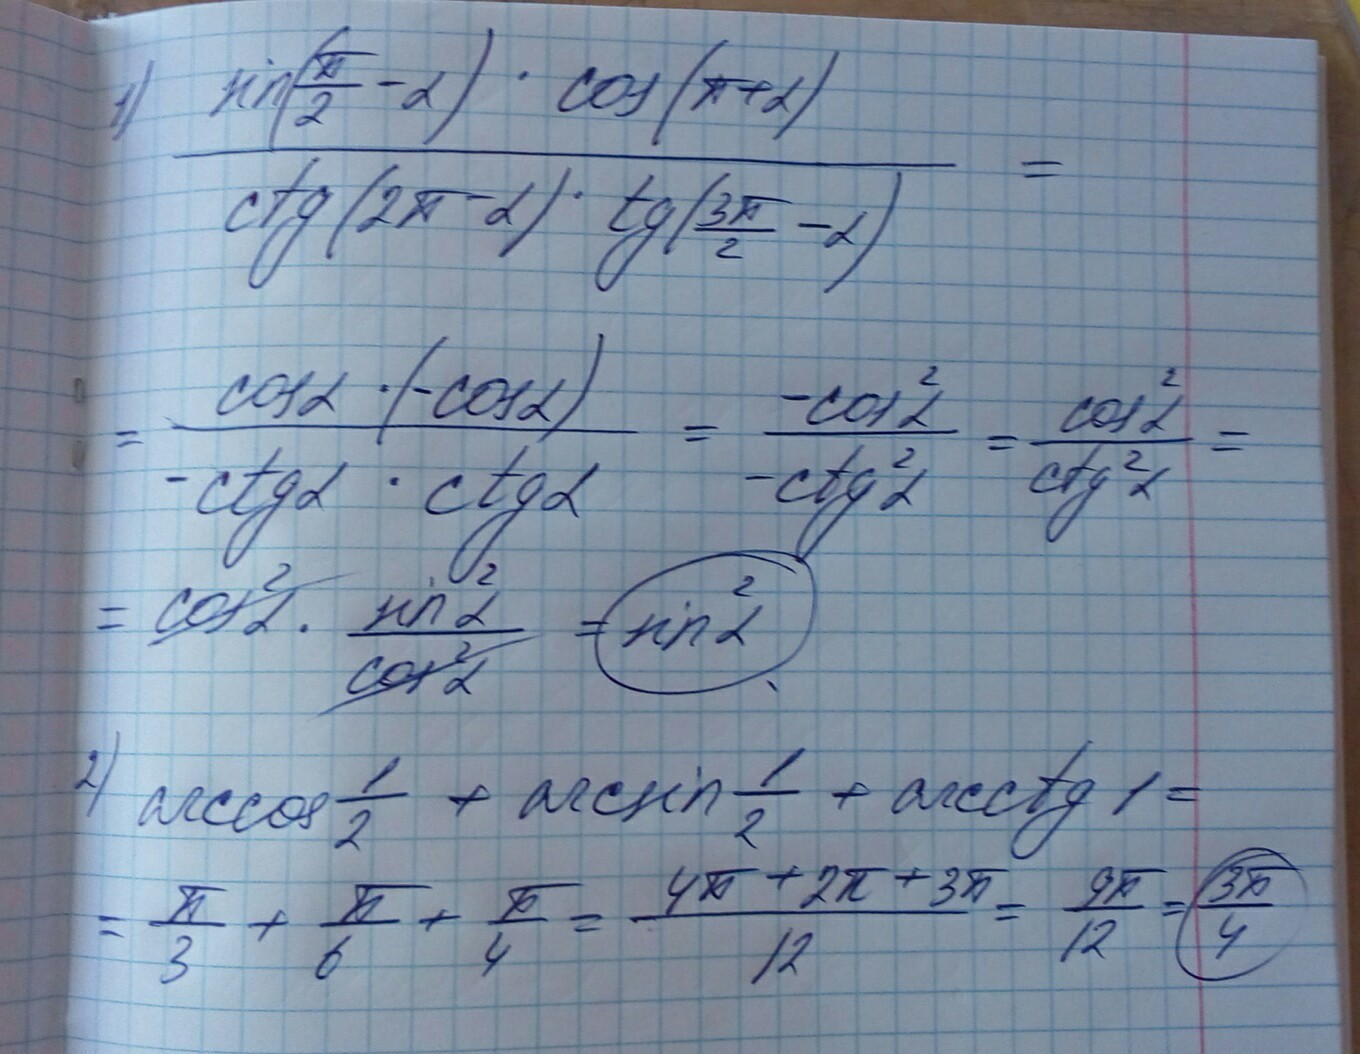 1) sin(π/2 - α) · cos(π + α)
ctg(2π - α) · tg(3π/2 - α) =
= cosα · (-cosα) / -ctgα · ctgα = -cos²α / -ctg²α = cos²α / ctg²α =
= cos²α · sin²α / cos²α = sin²α
2) arccos 1/2 + arcsin 1/2 + arcctg 1 =
= π/3 + π/6 + π/4 = 4π + 2π + 3π / 12 = 9π/12 = 3π/4